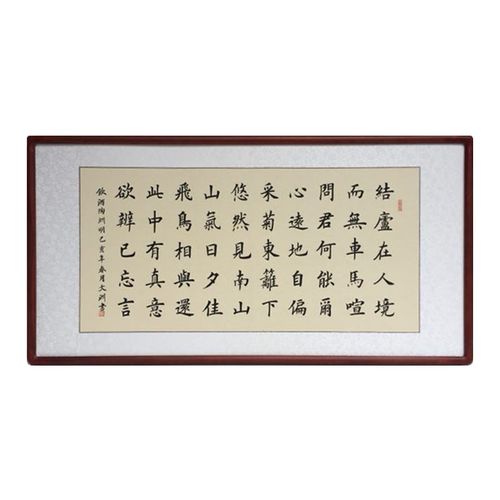 結廬在人境
而無車馬喧
問君何能爾
心遠地自偏
采菊東籬下
悠然見南山
山氣日夕佳
飛鳥相與還
此中有真意
欲辨已忘言
飲酒陶渊明己亥年春月文洲書